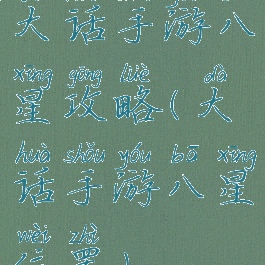 大话手游八
xīng gōng lüè dà
星攻略(大
huà shǒu yóu bā xīng
话手游八星
wèi zhì
位置)